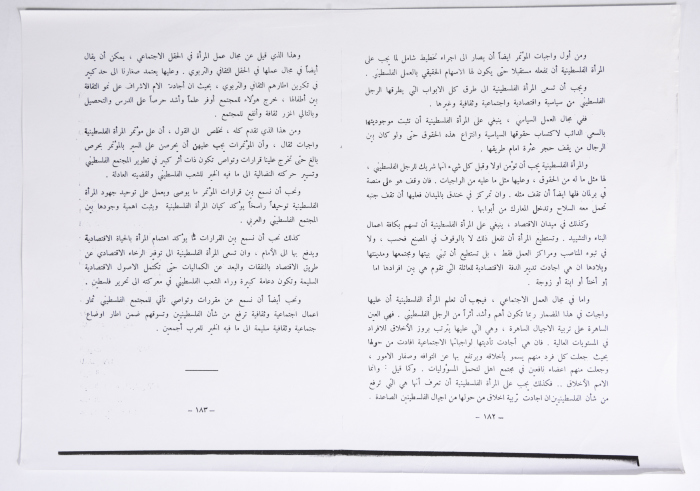 ومن أول واجبات المؤتمر ايضاً أن يصار الى اجراء تخطيط شامل لما يجب على
المرأة الفلسطينية أن تفعله مستقبلا حتى يكون لها الاسهام الحقيقي بالعمل الفلسطيني .
ويجب أن تسعى المرأة الفلسطينية الى طرق كل الابواب التي يطرقها الرجل
الفلسطيني من سياسية واقتصادية واجتماعية وثقافية وغيرها .
ففي مجال العمل السياسي ، ينبغي على المرأة الفلسطينية أن تثبت موجوديتها
بالسعي الدائب لاكتساب حقوقها السياسية وانتزاع هذه الحقوق حتى ولو كان بين
الرجال من يقف حجر عثرة امام طريقها .
والمرأة الفلسطينية يجب أن تؤمن اولا وقبل كل شيء انها شريك للرجل الفلسطيني ،
لها مثل ما له من الحقوق ، وعليها مثل ما عليه من الواجبات . فان وقف هو على منصة
في برلمان فلها ايضاً أن تقف مثله . وان تمركز في خندق بالميدان فعليها أن تقف جنبه
تحمل معه السلاح وتدخل المعارك من أبوابها .
وكذلك في ميدان الاقتصاد ، ينبغي على المرأة الفلسطينية أن تسهم بكافة اعمال
البناء والتشييد . وتستطيع المرأة أن تفعل ذلك لا بالوقوف في المصنع فحسب ، ولا
في تبوء المناصب ومراكز العمل فقط ، بل تستطيع أن تبني بيتها ومجتمعها ومدينتها
وبلادها ان هي اجادت تدبير الدفة الاقتصادية للعائلة التي تقوم هي بين افرادها اما
أو أختاً أو ابنة أو زوجة .
واما في مجال العمل الاجتماعي ، فيجب أن تعلم المرأة الفلسطينية أن عليها
واجبات في هذا المضمار ربما تكون أهم وأشد أثراً من الرجل الفلسطيني . فهي العين
الساهرة على تربية الاجيال الساهرة ، وهي التي عليها يترتب بروز الأخلاق للافراد
في المستويات العالية . فان هي أجادت تأديتها لواجباتها الاجتماعية افادت من حولها
بحيث جعلت كل فرد منهم يسمو بأخلاقه ويرتفع بها عن التوافه وصغار الامور ،
وجعلت منهم اعضاء نافعين في مجتمع اهل لتحمل المسؤوليات . وكما قيل : وانما
الامم الأخلاق .. فكذلك يجب على المرأة الفلسطينية أن تعرف أنها هي التي ترفع
من شأن الفلسطينيين ان اجادت تربية اخلاق من حولها من اجيال الفلسطينيين الصاعدة .
– ١٨٢ –
وهذا الذي قيل عن مجال عمل المرأة في الحقل الاجتماعي ، يمكن أن يقال
أيضاً في مجال عملها في الحقل الثقافي والتربوي . وعليها يعتمد صغارنا الى حد كبير
في تكوين اطارهم الثقافي والتربوي ، بحيث ان أجادت الام الاشراف على نمو الثقافة
بين أطفالها ، خرج هؤلاء للمجتمع أوفر علماً وأشد حرصاً على الدرس والتحصيل
وبالتالي اغزر ثقافة وأنفع للمجتمع .
ومن هذا الذي تقدم كله ، نخلص الى القول ، أن على مؤتمر المرأة الفلسطينية
واجبات ثقال ، وأن المؤتمرات يجب عليهن أن يحرصن على السير بالمؤتمر بحرص
بالغ حتى تخرج علينا قرارات وتواصٍ تكون ذات أثر كبير في تطوير المجتمع الفلسطيني
وتسيير حركته النضالية الى ما فيه الخير للشعب الفلسطيني ولقضيته العادلة .
ونحب أن نسمع بين قرارات المؤتمر ما يوصى ويعمل على توحيد جهود المرأة
الفلسطينية توحيداً راسخاً يؤكد كيان المرأة الفلسطينية ويثبت اهمية وجودها بين
المجتمع الفلسطيني والعربي .
كذلك نحب أن نسمع بين القرارات ما يؤكد اهتمام المرأة بالحياة الاقتصادية
ويدفع بها الى الأمام ، وان تسعى المرأة الفلسطينية الى توفير الرخاء الاقتصادي عن
طريق الاقتصاد بالنفقات والبعد عن الكماليات حتى تكتمل الاصول الاقتصادية
السليمة وتكون دعامة كبيرة وراء الشعب الفلسطيني في معركته الى تحرير فلسطين .
ونحب أيضاً أن نسمع عن مقررات وتواصٍ تأتي للمجتمع الفلسطيني ثمار
اعمال اجتماعية وثقافية ترفع من شأن الفلسطينيين وتسوقهم ضمن اطار اوضاع
جماعية وثقافية سليمة الى ما فيه الخير للعرب أجمعين .
– ١٨٣ –